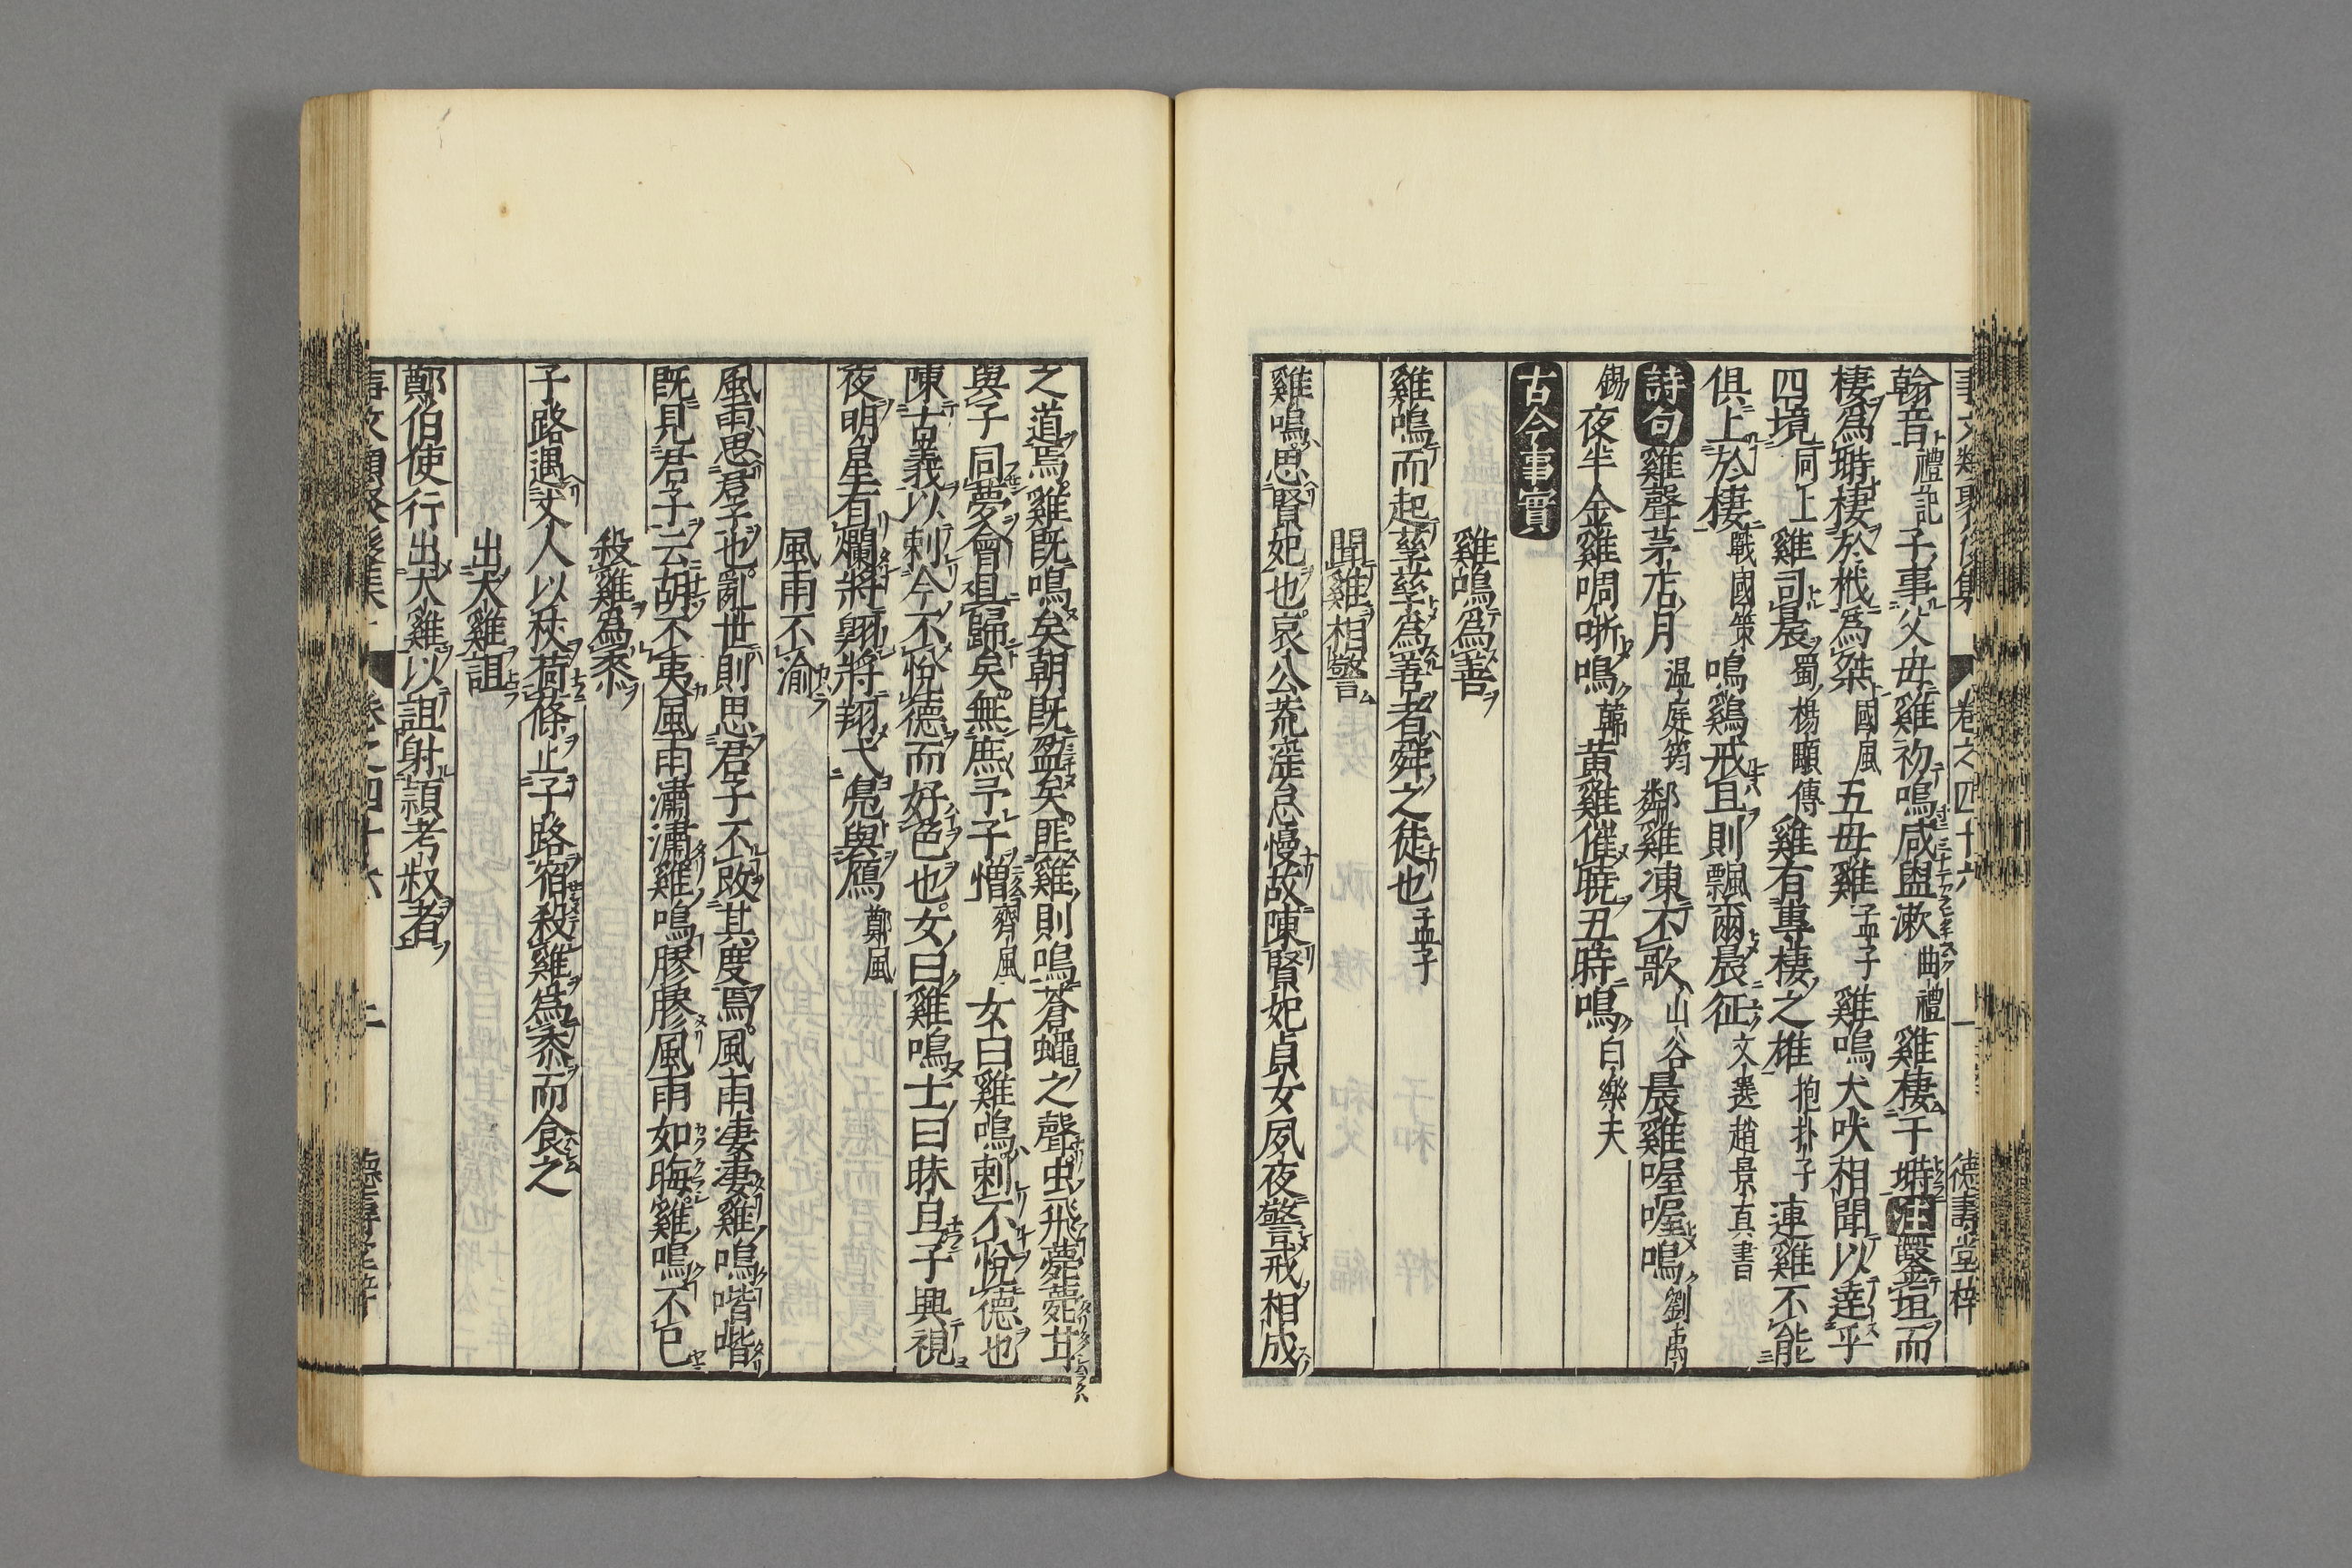 事文類聚後集 卷之四十六 一 德壽堂梓
翰音禮記子事父母雞初鳴咸盥漱曲禮雞棲于塒注鑿垣而
棲爲塒棲於杙爲桀國風五母雞孟子雞鳴犬吠相聞以達乎
四境同上雞司晨蜀楊顒傳雞有專棲之雄抱扑子連雞不能
俱上於棲戰國策鳴鷄戒旦則飄爾晨征文選趙景真書
詩句雞聲茅店月温庭筠鄰雞凍不歌山谷晨雞喔喔鳴劉禹
錫夜半金雞啁哳鳴韓黃雞催曉丑時鳴白樂天
古今事實
雞鳴爲善
雞鳴而起孳孳爲善者舜之徒也孟子
聞雞相警
雞鳴思賢妃也哀公荒淫怠慢故陳賢妃貞女夙夜警戒相成
之道焉雞旣鳴矣朝旣盈矣匪雞則鳴蒼蠅之聲虫飛薨薨甘
與子同夢會且歸矣無庶予子憎齊風女曰雞鳴刺不悅德也
陳古義以刺今不悅德而好色也女曰雞鳴士曰昧旦子興視
夜明星有爛將翱將翔弋鳧與鴈鄭風
風雨不渝
風雨思君子也亂世則思君子不改其度焉風雨凄凄雞鳴喈喈
旣見君子云胡不夷風雨瀟瀟雞鳴膠膠風雨如晦雞鳴不已
殺雞爲黍
子路遇丈人以杖荷蓧止子路宿殺雞爲黍而食之
出犬雞詛
鄭伯使行出犬雞以詛射頴考叔者
事文類聚後集 卷之四十六 二 德壽堂梓